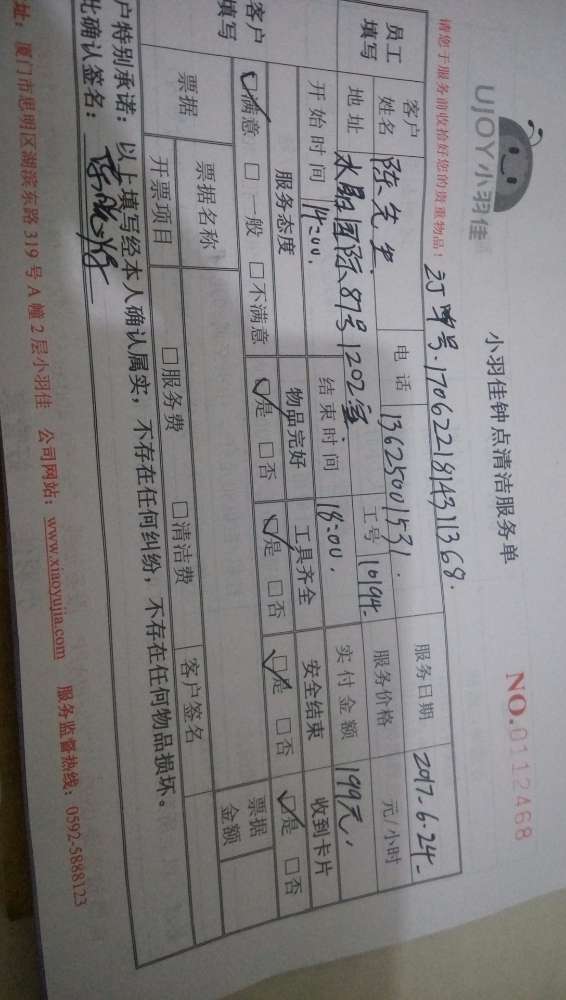 UJOY小羽佳
小羽佳钟点清洁服务单
NO.0112468
请您于服务前收拾好您的贵重物品！
订单号.1706221814311368.
员工填写
客户姓名 陈先生. 电话 13625001531. 服务日期 2017-6-24
地址 水晶国际87号1202室. 工号 10194 服务价格 元/小时
开始时间 14:00. 结束时间 18:00. 实付金额 199元.
客户填写
服务态度 物品完好 工具齐全 安全结束 收到卡片
☑满意 □一般 □不满意 ☑是 □否 ☑是 □否 ☑是 □否 ☑是 □否
票据 票据名称 客户签名 票据金额
开票项目 □服务费 □清洁费
户特别承诺：以上填写经本人确认属实，不存在任何纠纷，不存在任何物品损坏。
此确认签名：
址：厦门市思明区湖滨东路319号A幢2层小羽佳 公司网站：www.xiaoyujia.com 服务监督热线：0592-5888123